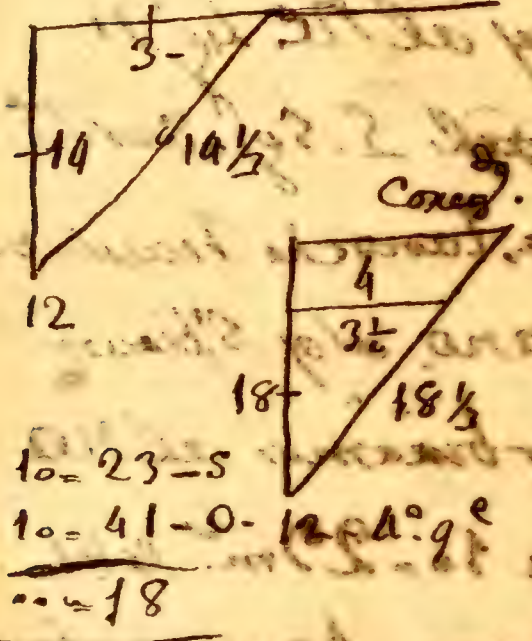 3-
14 14 1/3
12
4
3 1/2
18 18 1/3
10= 23-5
10= 41-0- 12
18